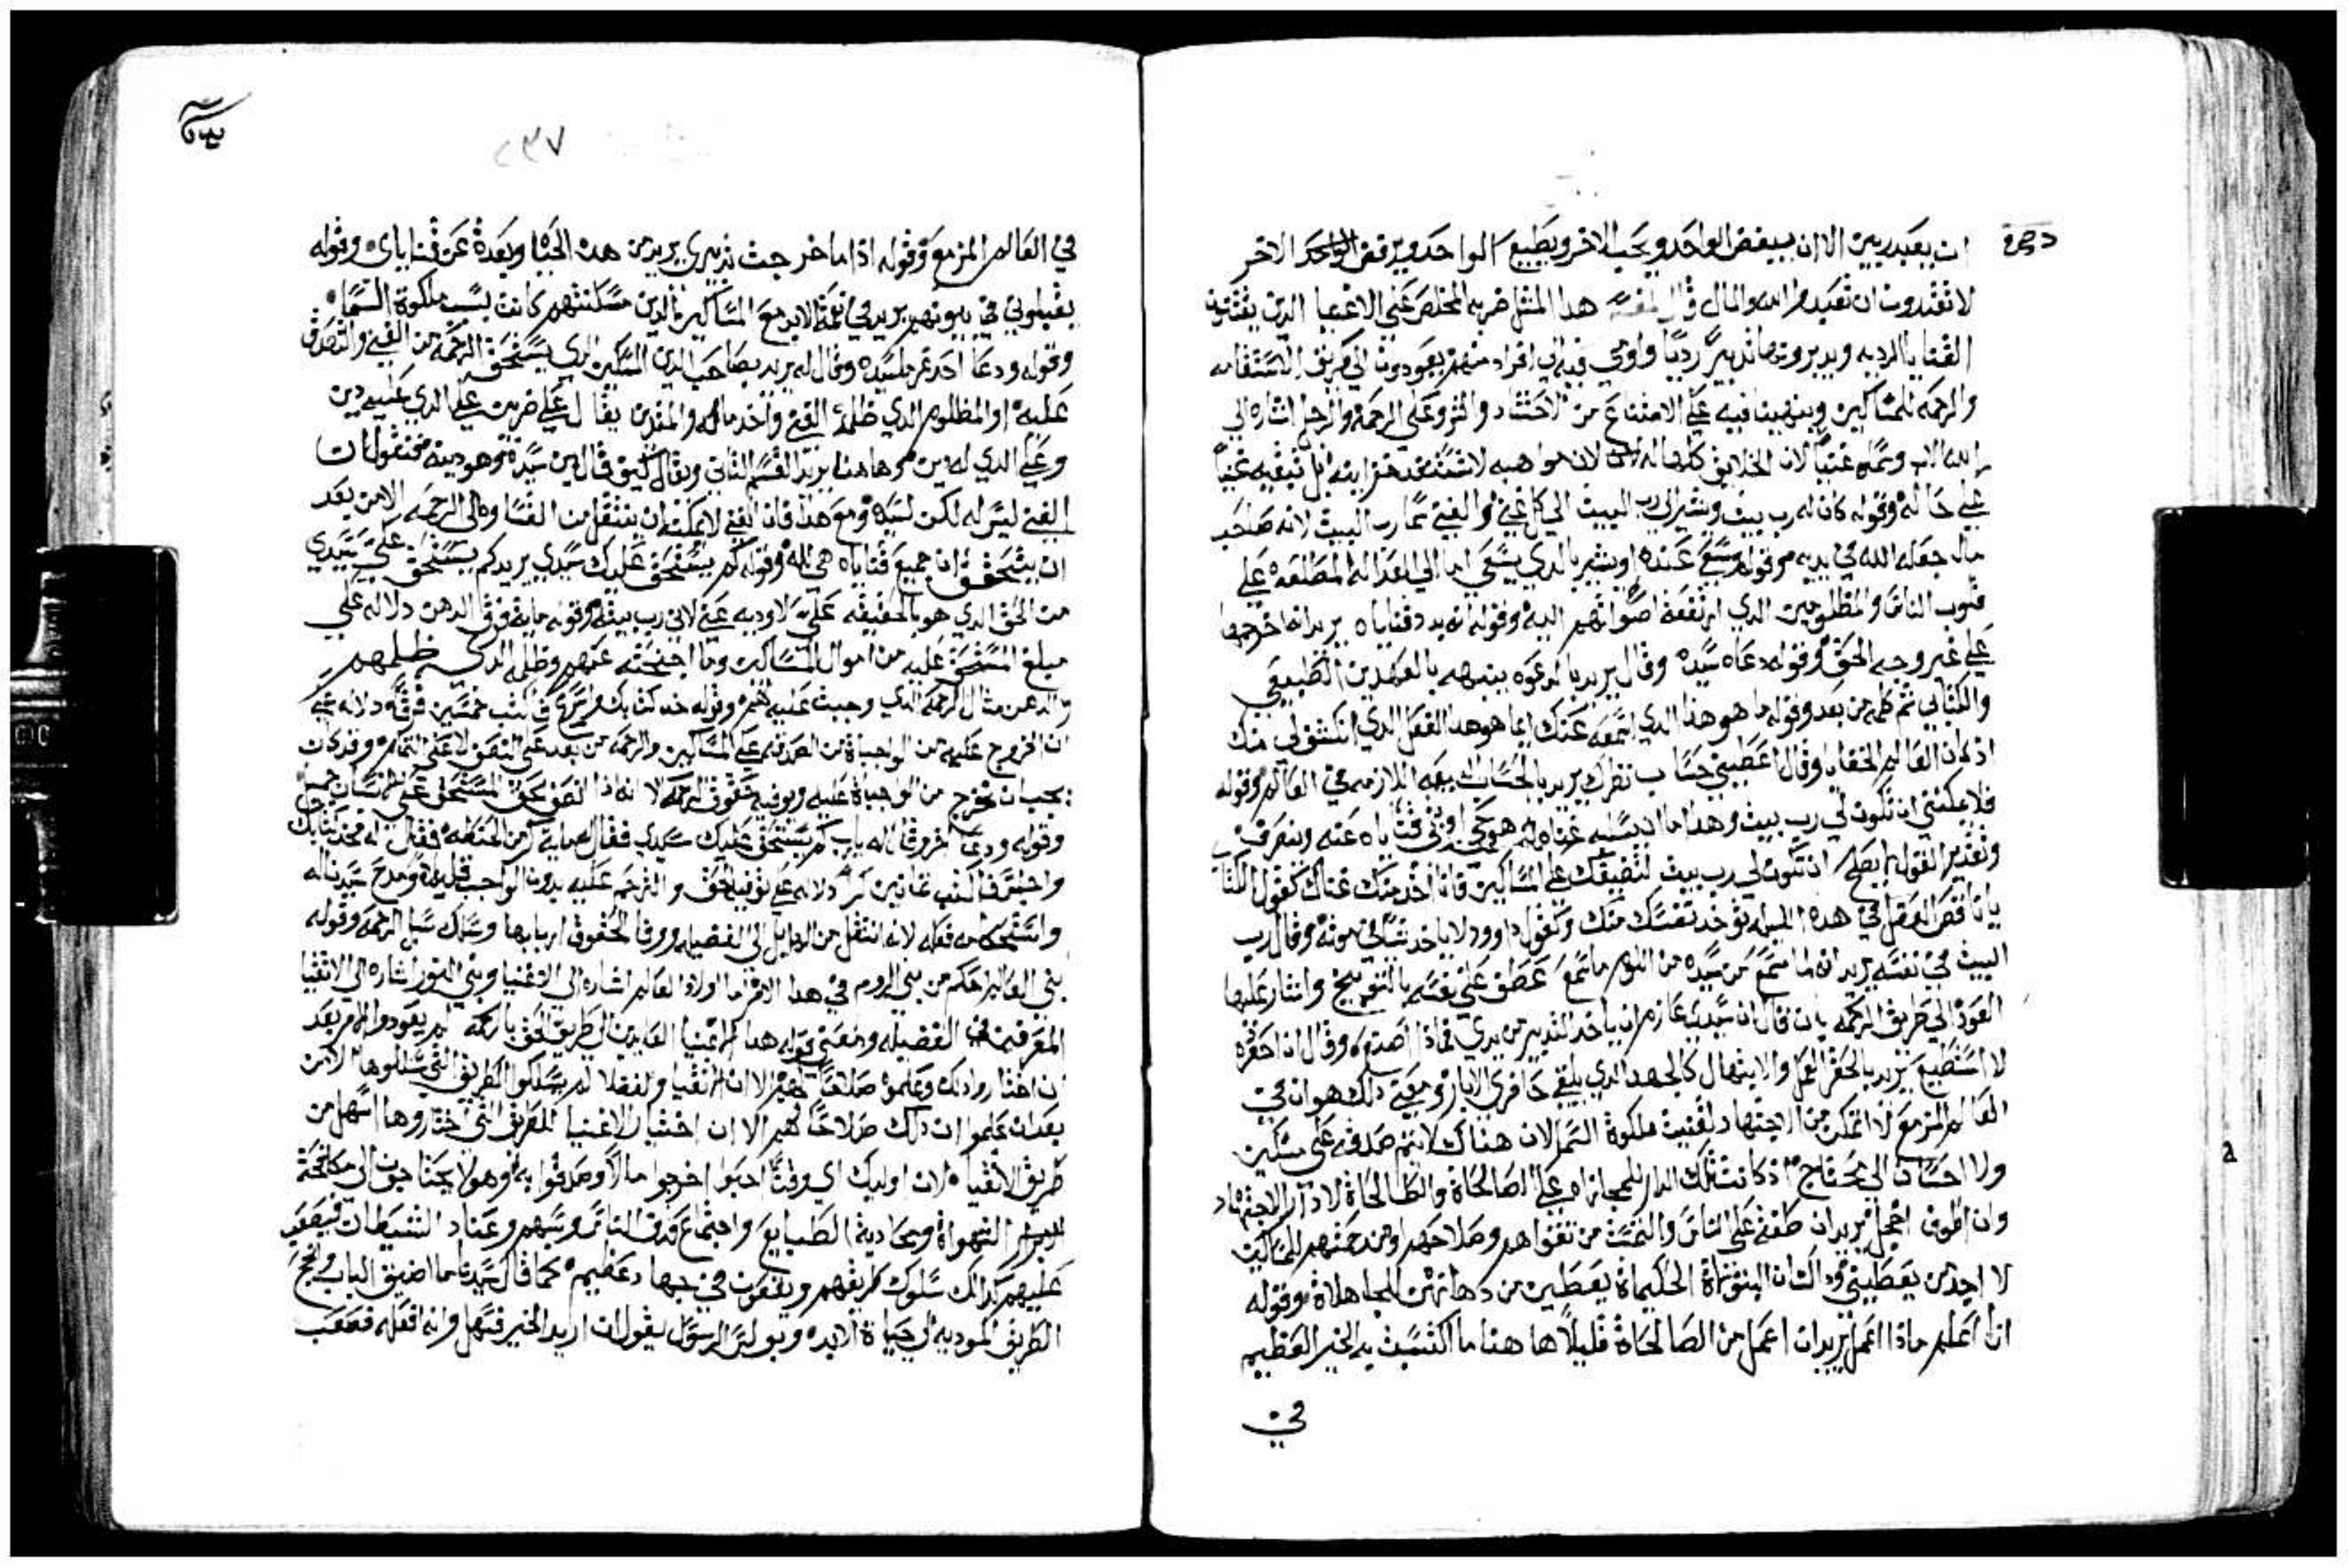 ان يعبد ربين الا ان يبغض الواحد ويحب الاخر ويطيع الواحد ويرفض الواحد الاخر
لا تقتدرون ان تعبدوا الله والمال قال المفسر هدا المثل ضربه المخلص عني الاغنيا الدين يقتنون
القنايا الرديه ويدبرونها تدبيرًا رديًا واومى فيه الى افراد منهم يعودون الى طريق الاستقامه
والرحمه للمساكين وينهينا فيه على الامتناع من الاحتشاد والتروعلى الرحمه والرجل اشاره الى
الله الاب وسماه غنيًا لان الخلايق كلها له لان مواهبه لا تستنفد خزاينه بل تبقيه غنياً
على حاله وقوله كان له رب بيت ويشير الى رب البيت الى كل غني والغني سما رب البيت لانه صاحب
مال جعله الله في يديه وقوله وسعى عنده اويشير بالدي يسعى اما الى العداله المطلعه على
قلوب الناس والمظلومين الدي ارتفعة اصواتهم اليه وقوله انه بدد قناياه يريد انه اخرجها
على غير وجه الحق وقوله دعاه سيده وقال يريد بالدعوه ينبهه بالعهدين الطبيعي
والكتابي ثم كلمه من بعد وقوله ما هو هدا الدي اسمعه عنك ايما هو هدا الفعل الدي انكشف لي منك
اذ انا العالم الخفايا وقال اعطيني حساب نظرك يريد بالحساب بيعه اللازمه في العالم وقوله
فلا يمكنني ان تكون لي رب بيت وهدا اما ان يسلبه غناه او هو حي او تبقى قناياه عنه وينصرف
وتقدير القول لا يصلح ان تكون لي رب بيت لتضيقك على المساكين فانا اخد منك غناك كقول الكتاب
يا ناقص العقل في هده الليله توخد نفسك منك وكقول داوود لا ياخد شيًا في موته وقال رب
البيت في نفسه يريد انه لما سمع من سيده من اللوم ما سمع عطف على نفسه بالتوبيخ واشار عليها
العود الى طريق الرحمه بان قال ان سيدي عازم ان ياخد التدبير من يدي فماذا اصنع وقال ان احفره
لا استطيع يريد بالحفر العمل والابتهال كالجهد الدي يلقى حافري الابار ومعنى دلك هو ان في
العالم المزمع لا اتمكن من الاجتهاد لقنيت ملكوة السما لان هناك لا تتم صدقه على مسكين
ولا احسان الى محتاج اذ كانت تلك الدار للمجازاه على الصالحاة والطالحاة لا دار الاجتهاد
وان اطوف اخجل يريد ان طفت على الناس والتمست من تقواهم وصلاحهم ومن رحمتهم للمساكين
لا اجد من يعطيني ولا كان البتولات الحكيماة يعطين من دهانتهن للجاهلاة وقوله
انا اعلم ماذا اعمل يريد ان اعمل من الصالحاة قليلًا ها هنا ما اكتسبت به الخير العظيم
في
٢٣٧
في العالم المزمع وقوله اذا ما خرجت تدبيري يريد من هده الحياه وبعدة عن قناياى وقوله
يقبلوني في بيوتهم يريد في نعمة الابد مع المساكين الدين مسكنتهم كانت بسبب ملكوة السما
وقوله ودعا احد غرما سيده وقال له يريد بصاحب الدين المسكين الدي يستحق الرحمه من الغني والتصدق
عليه او المظلوم الدي ظلمه الغني واخد ماله والمدين يقال على ضربين على الدي عليه دين
وعلى الدي له دين وهاهنا يريد القسم الثاني ويقال كيف قال دين سيده وهو دينه فنقول ان
الغني ليس له لكن لسيده ومع هدا فان الغني لا يمكنه ان ينتقل من القساوه الى الرحمه الا من بعد
ان يتحقق ان جميع قناياه هي لله وقوله كم يستحق عليك سيدي يريد كم يستحق علي سيدي
من الحق الدي هو بالحقيقه علي لاوديه عني لاني رب بيته وقوله مايه فرق الدهن دلاله على
مبلغ المستحق عليه من اموال المساكين وما احتجته عنهم وظلمه الدي ظلمهم
والدهن مثال الرحمه الدي وجبت عليه لهم وقوله خد كتابك واسرع فاكتب خمسين فرقًا دلاله على
ان الخروج عليه من الواجباة من الصدقه على المساكين والرحمه من بعد على النصف لا على التمام وقد كان
يجب ان يخرج من الواجباة عليه ويوفيه حقوق الرحمه لا انه ادا النصف بحق المستحق على الانسان
وقوله ودعا اخر وقال له يارب كم يستحق عليك سيدي فقال له ماية كر من الحنطه فقال له فخد كتابك
واجلس فاكتب ثمانين كرًا دلاله على توفية الحق والترحم عليه بدون الواجب قليلا ومدح سيدنا له
واستحكامه فعله لانه انتقل من الردايل الى الفضيله ووفا الحقوق اربابها وسلك سبل الرحمه وقوله
بني العالم احكم من بني النور في هدا الامر اما اولاد العالم اشاره الى الاغنيا وبني النور اشاره الى الاتقيا
المعرقين في الفضيله ومعنى قوله هدا الاغنيا العايدين الى طريق الحق بالرحمه لم يعودوا الا من بعد
ان اختاروا دلك وعلموه صلاحًا لهم الا ان الاتقيا والفضلا لم يسلكوا الطريق التي سلكوها الا من
بعد ان علموا ان دلك صلاحًا لهم الا ان اختيار الاغنيا الطريق التي اختاروها اسهل من
طريق الاتقيا لان اوليك اي وقتًا احبوا اخرجوا مالًا وصدقوا به وهولا يحتاجون الى مكافحة
الشهواة ومجادبة الطبايع واجتماع قدف الناس وسبهم وعناد الشيطان فيصعب
عليهم كدالك سلوك طريقهم ويقفون في حبها دعظيم كما قال سيدنا ما اضيق الباب واحج
الطريق المودية الى حياة الابد وبولس الرسول يقول ان اريد الخير فسهل وانه افعله فصعب